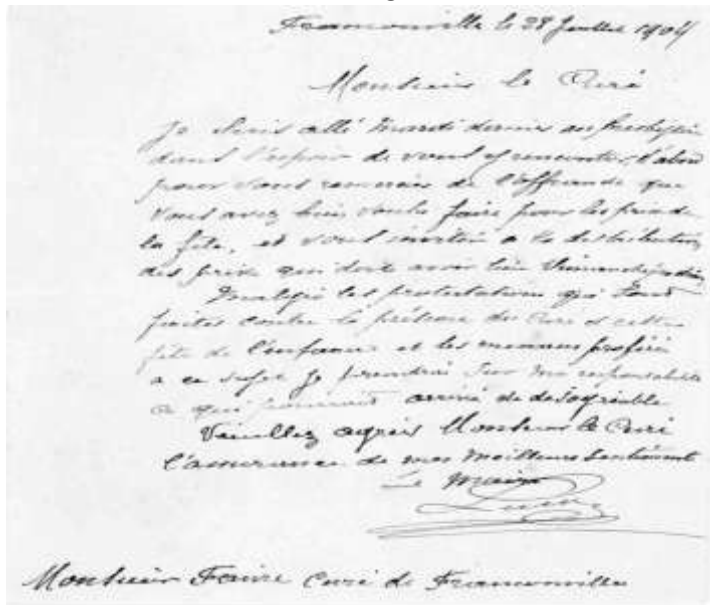 Franconville le 28 Juillet 1904
Monsieur le Curé
Je suis allé Mardi dernier au presbytère
dans l'espoir de vous y rencontrer, d'abord
pour vous remercier de l'offrande que
vous avez bien voulu faire pour les prix de
la fête, et vous inviter a la distribution
des prix qui doit avoir lieu Dimanche
Malgré les protestations qui sont
faites contre la présence du Curé a cette
fête de l'enfance et les menaces
a ce sujet je prendrai sur ma responsabilité
ce qui pourrait arrivé de désagréable
Veuillez agréer Monsieur le Curé
l'assurance de mes meilleurs Sentiments
Le Maire
Monsieur Faivre Curé de Franconville